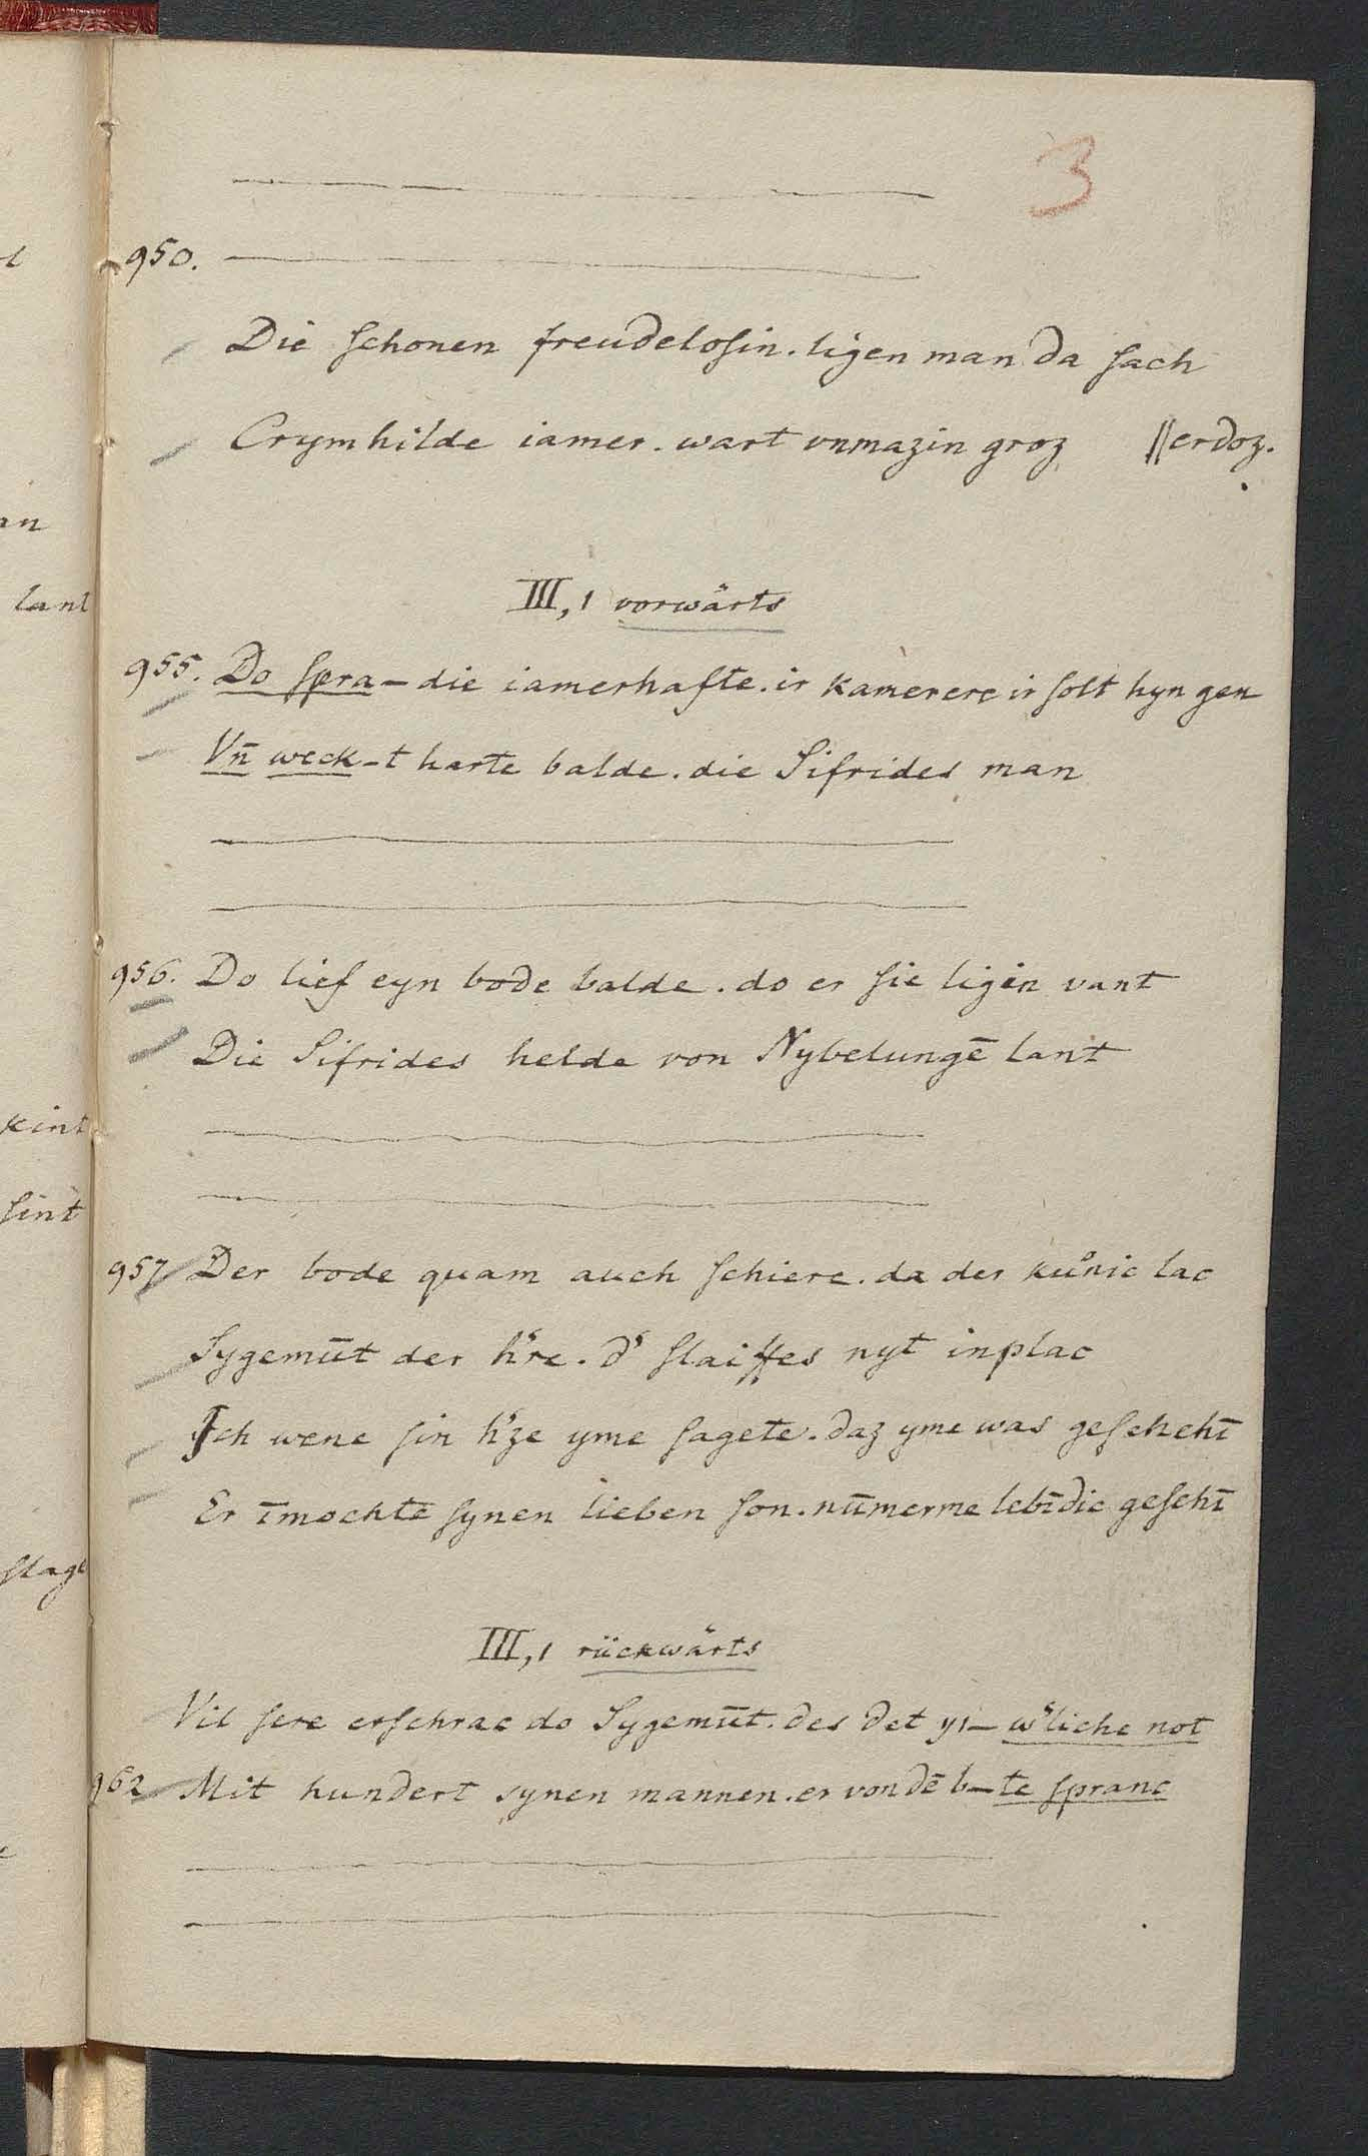 3
950.
Die ſchonen freudeloſin. ligen man da ſach
Crymhilde iamer. wart vnmazin groz || erdoz.
III, 1 vorwärts
955. Do ſpra– die iamerhafte. ir kamerere ir ſolt hyn gen
Vn̄ weck–t harte balde. die Sifrides man
956. Do lief eyn bode balde. do er ſie ligin vant
Die Sifrides helde von Nybelungē lant
957 Der bode quam auch ſchiere. da der kuͦnic lac
Sygemūt der h're. d' ſlaiffes nyt inplac
Ich wene ſin h'ze yme ſagete. daz yme was geſchehī
Er īmochte ſynen lieben ſon. nūmerme lebīdic geſehī
III, 1 rückwärts
Vil ſere erſchrac do Sygemūt. des det yı– w'liche not
962 Mit hundert synen mannen. er von dē b–te ſpranc